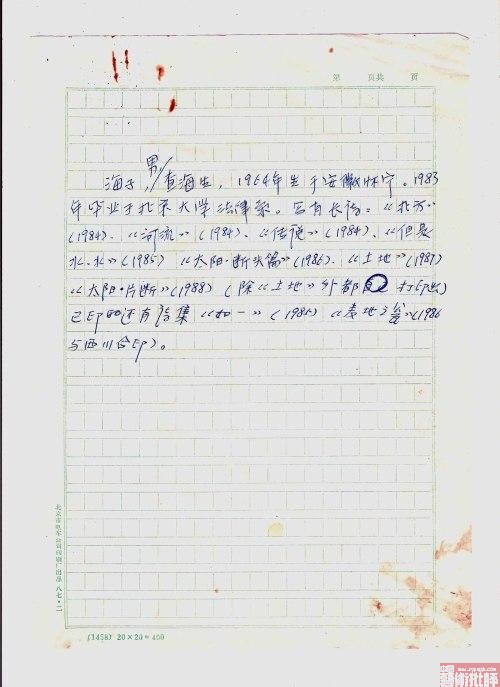 第 页共 页
海子，男，查海生，1964年生于安徽怀宁。1983
年毕业于北京大学法律系。写有长诗：《北方》
(1984)、《河流》(1984)、《传说》(1984)、《但是
水、水》(1985)《太阳·断头篇》(1986)、《土地》(1987)
《太阳·片断》(1988)（除《土地》外都已打印出）
已印的还有诗集《如一》(1985)《麦地之瓮》(1986
与西川合印)。
北京市电车公司印刷厂出品 八七·二
(1458) 20×20=400
艺術批評